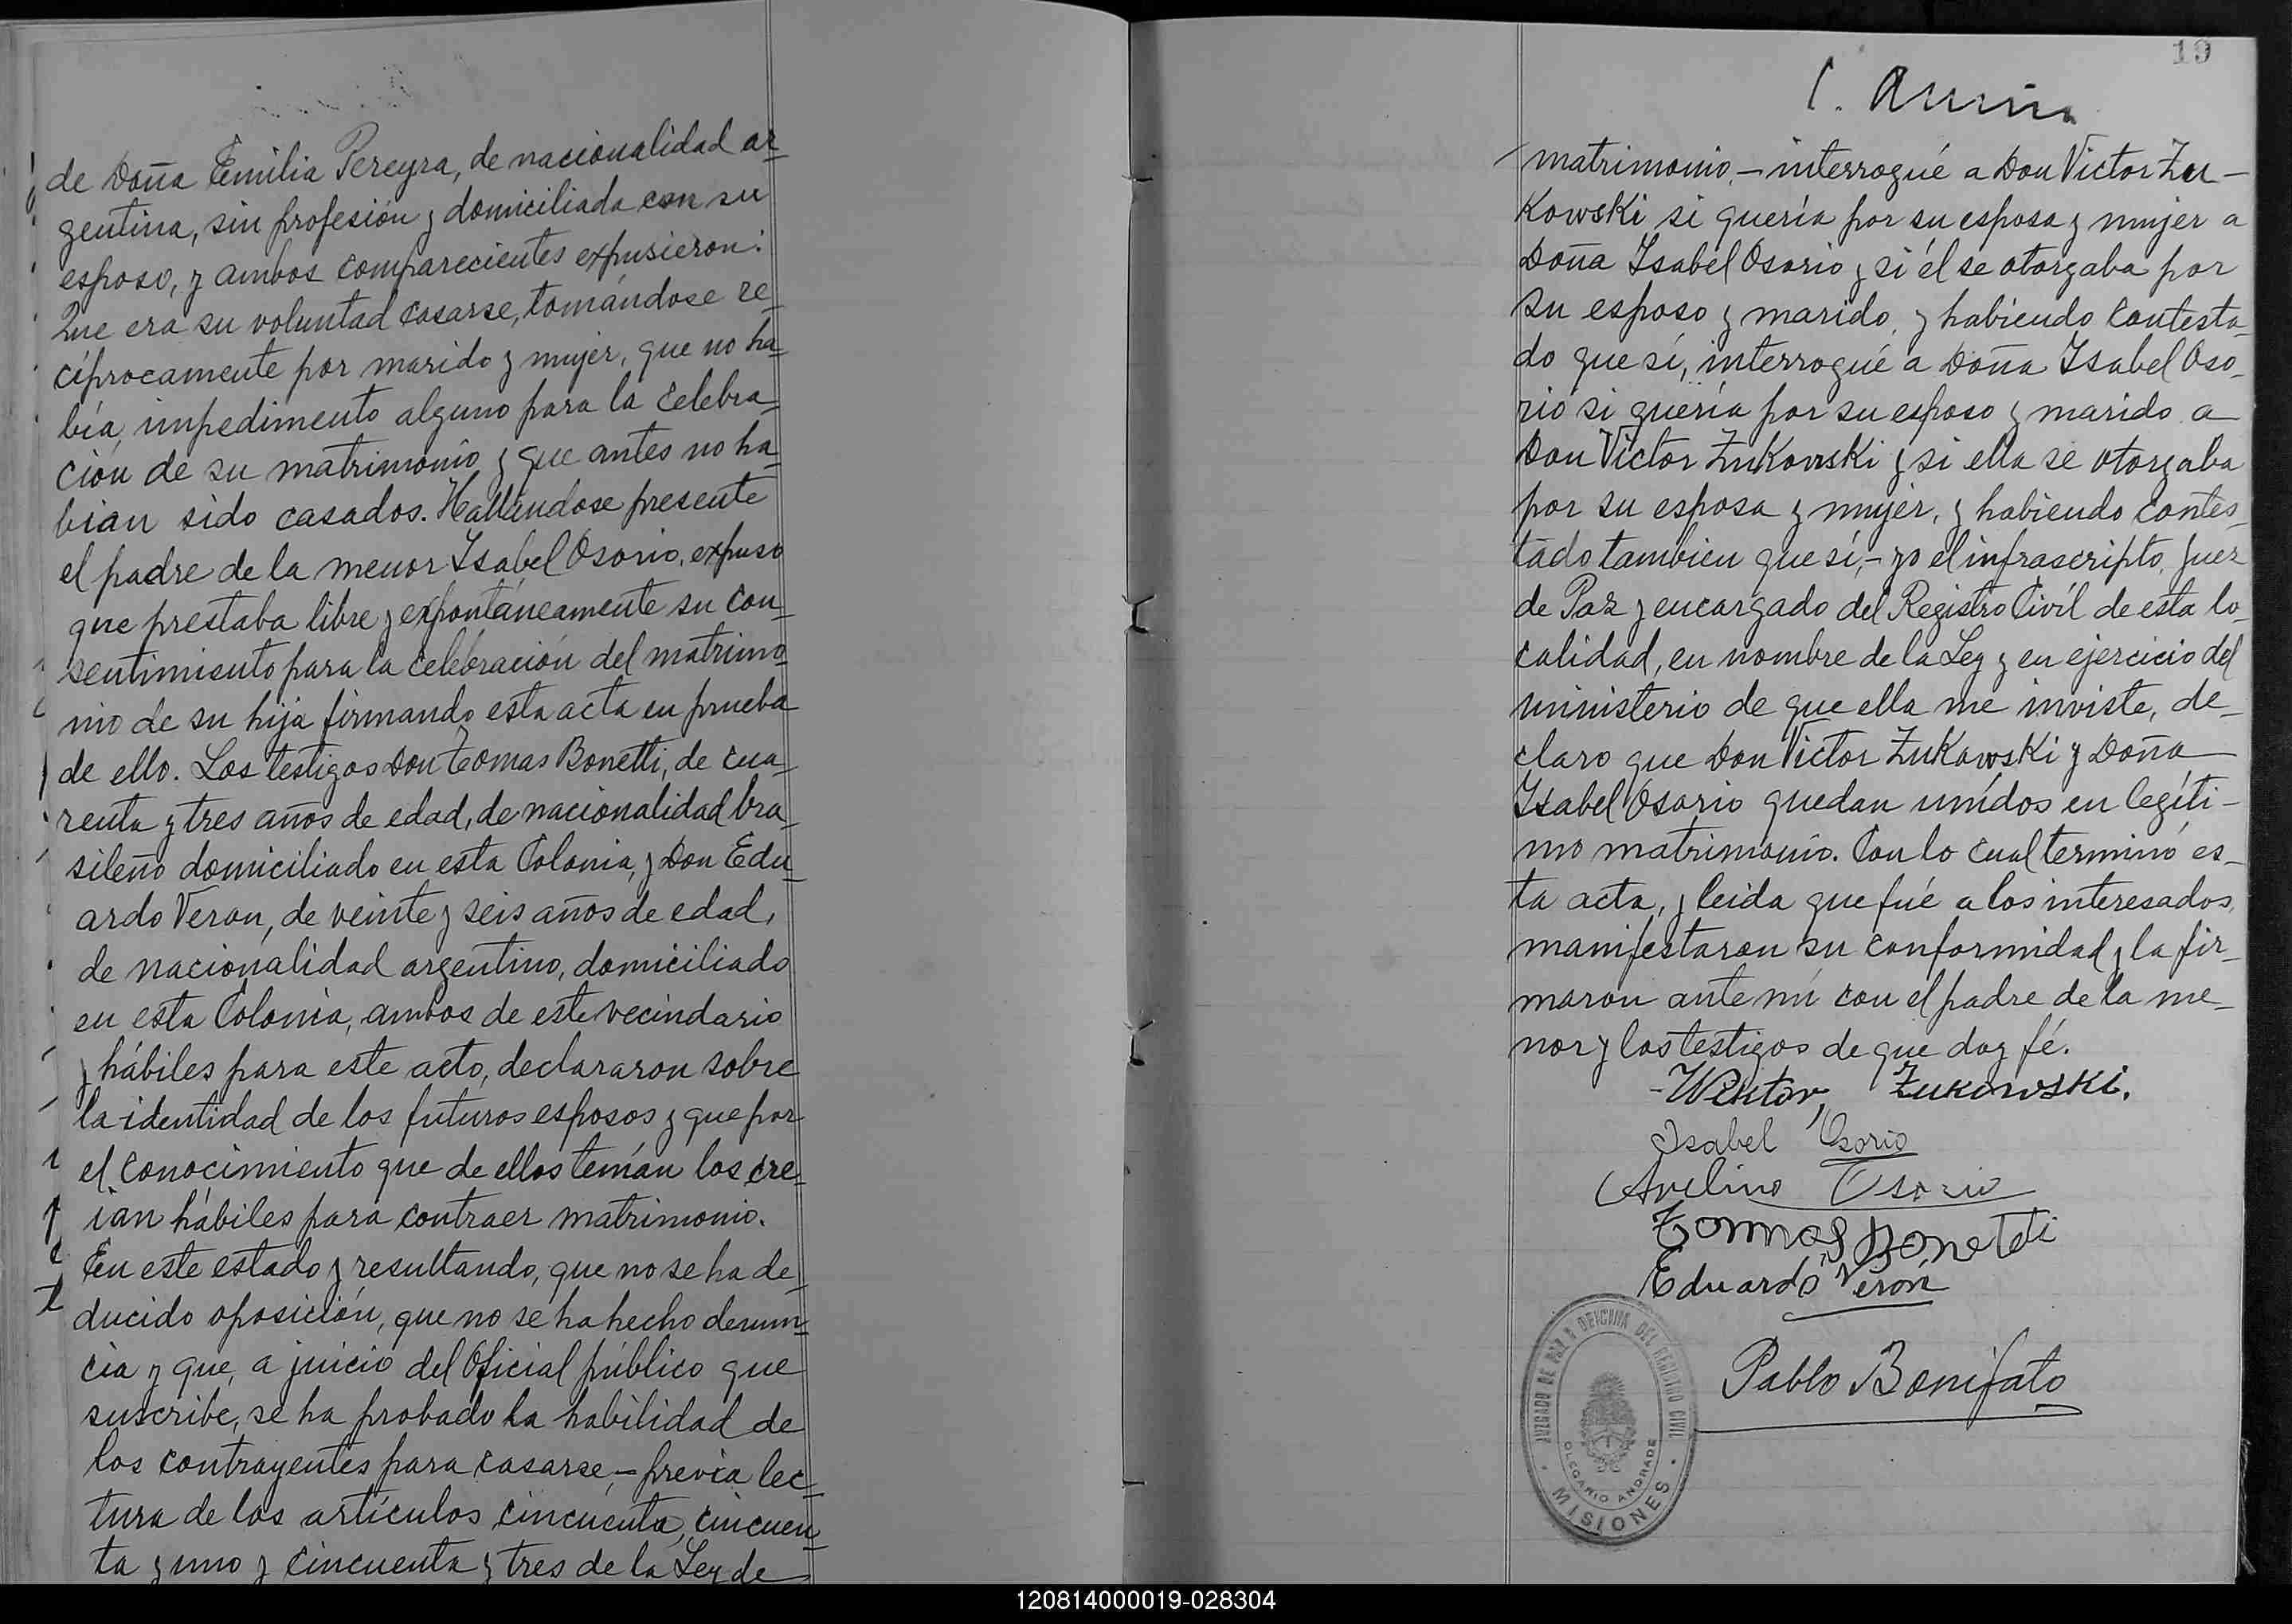 de Doña Emilia Pereyra, de nacionalidad ar-
gentina, sin profesión y domiciliada con su
esposo, y ambos comparecientes expusieron:
Que era su voluntad casarse, tomándose re-
cíprocamente por marido y mujer, que no ha-
bía, impedimento alguno para la celebra-
ción de su matrimonio y que antes no ha-
bian sido casados. Hallándose presente
el padre de la menor Isabel Osorio, expuso
que prestaba libre y expontáneamente su con-
sentimiento para la celebración del matrimo-
nio de su hija firmando esta acta en prueba
de ello. Los testigos Don Tomas Bonetti, de cua-
renta y tres años de edad, de nacionalidad bra-
sileño domiciliado en esta Colonia, y Don Edu-
ardo Veron, de veinte y seis años de edad,
de nacionalidad argentino, domiciliado
en esta Colonia, ambos de este vecindario
y hábiles para este acto, declararon sobre
la identidad de los futuros esposos y que por
el conocimiento que de ellos tenían los cre-
ían hábiles para contraer matrimonio.
En este estado y resultando, que no se ha de-
ducido oposición, que no se ha hecho denun-
cia y que, a juicio del Oficial público que
suscribe, se ha probado la habilidad de
los contrayentes para casarse,- previa lec-
tura de los artículos cincuenta, cincuen-
ta y uno y cincuenta y tres de la Ley de
19
matrimonio,- interrogué a Don Victor Zu-
Kowski si quería por su esposa y mujer a
Doña Isabel Osorio y si él se otorgaba por
su esposo y marido, y habiendo contesta-
do que sí, interrogué a Doña Isabel Oso-
rio si quería por su esposo y marido a
Don Victor ZuKowski y si ella se otorgaba
por su esposa y mujer, y habiendo contes-
tado tambien que sí,- yo el infrascripto, Juez
de Paz y encargado del Registro Civíl de esta lo-
calidad, en nombre de la Ley y en ejercicio del
ministerio de que ella me inviste, de-
claro que Don Victor ZuKowski y Doña
Isabel Osorio quedan unídos en legíti-
mo matrimonio. Con lo cual terminó es-
ta acta, y leida que fué a los interesados,
manifestaron su conformidad y la fir-
maron ante mí con el padre de la me-
nor y los testigos de que doy fé.
Wiktor Zukowski.
Isabel Osorio
Avelino Osorio
Tommas Bonetti
Eduardo Verón
Pablo Bonifato
JUZGADO DE PAZ Y OFICINA DEL REGISTRO CIVIL
OLEGARIO ANDRADE
MISIONES
120814000019-028304